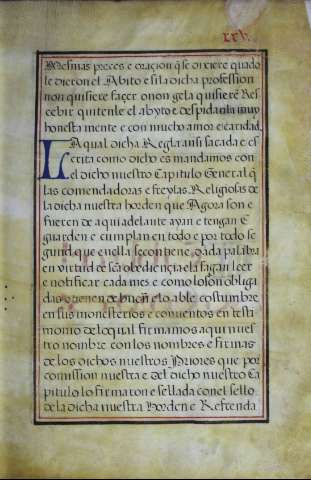 mesmas preces e oracion q̃ se dixere quãdo
le dieron el Abito e si la dicha profession
non quisiere façer o non gela quisierẽ Res
cebir quitenle el abyto e despidanla muy
honesta mente e con mucho amor e caridad
La qual dicha Regla ansi sacada e es
crita como dicho es mandamos con
el dicho nuestro Capitulo General q̃
las comendadoras e freylas Religiosas de
la dicha nuestra horden que Agora son e
fueren de aqui adelante ayan e tengan E
guarden e cumplan en todo e por todo se
gund que en ella se contiene cada palabra
en virtud de sctã obediencia e la fagan leer
e notificar cada mes e como lo son obliga
das o tienen de buenã e lo able costumbre
en sus monesterios e conventos en testi
monio de lo qual firmamos aqui nuestro
tro nombre con los nombres e firmas
de los dichos nuestros Priores que por
comission nuestra e del dicho nuestro Ca
pitulo lo firmaron e sellada con el sello
de la dicha nuestra Horden e Refrenda